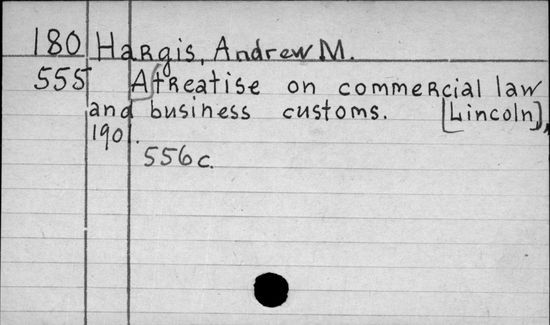 180 Hargis, Andrew M.
555 A treatise on commercial law
and business customs. [Lincoln],
1901.
556 c.